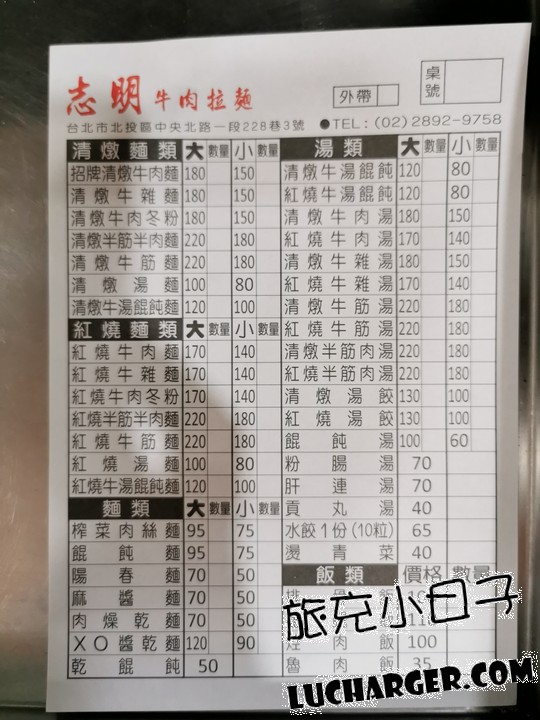 志明牛肉拉麵
外帶
桌號
台北市北投區中央北路一段228巷3號 ●TEL:(02)2892-9758
清燉麵類 大 數量 小 數量
招牌清燉牛肉麵 180 150
清燉牛雜麵 180 150
清燉牛肉冬粉 180 150
清燉半筋半肉麵 220 180
清燉牛筋麵 220 180
清燉湯麵 100 80
清燉牛湯餛飩麵 120 100
紅燒麵類 大 數量 小 數量
紅燒牛肉麵 170 140
紅燒牛雜麵 170 140
紅燒牛肉冬粉 170 140
紅燒半筋半肉麵 220 180
紅燒牛筋麵 220 180
紅燒湯麵 100 80
紅燒牛湯餛飩麵 120 100
麵類 大 數量 小 數量
榨菜肉絲麵 95 75
餛飩麵 95 75
陽春麵 70 50
麻醬麵 70 50
肉燥乾麵 70 50
XO醬乾麵 120 90
乾餛飩 50
湯類 大 數量 小 數量
清燉牛湯餛飩 120 80
紅燒牛湯餛飩 120 80
清燉牛肉湯 180 150
紅燒牛肉湯 170 140
清燉牛雜湯 180 150
紅燒牛雜湯 170 140
清燉牛筋湯 220 180
紅燒牛筋湯 220 180
清燉半筋肉湯 220 180
紅燒半筋肉湯 220 180
清燉湯餃 130 100
紅燒湯餃 130 100
餛飩湯 100 60
粉腸湯 70
肝連湯 70
貢丸湯 40
水餃1份(10粒) 65
燙青菜 40
飯類 價格 數量
飯
肉飯 100
魯肉飯 35
旅充小日子
LUCHARGER.COM